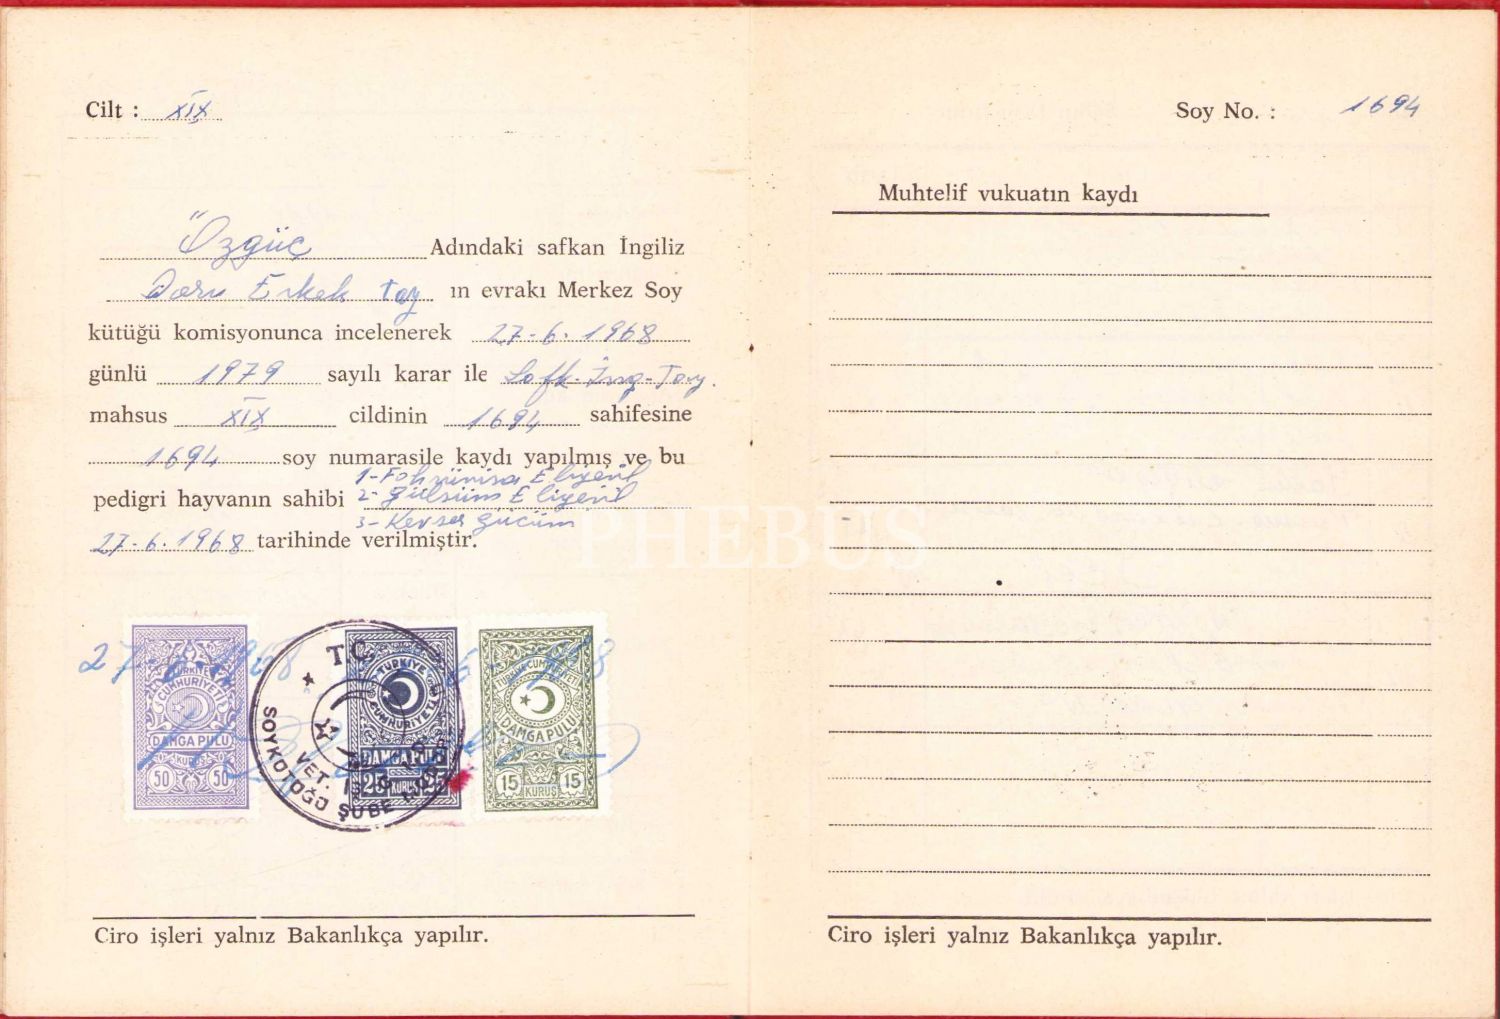 Cilt : XIX
Özgüç Adındaki safkan İngiliz
Doru Erkek tay ın evrakı Merkez Soy
kütüğü komisyonunca incelenerek 27-6-1968
günlü 1979 sayılı karar ile Safk-İng-Tay.
mahsus XIX cildinin 1694 sahifesine
1694 soy numarasile kaydı yapılmış ve bu
1-Fahrünisa Eliyeşil
pedigri hayvanın sahibi 2-Gülsüm Eliyeşil
3-Kevser Gücüm
27-6-1968 tarihinde verilmiştir.
27-6-1968
T.C.
VET.
SOYKÜTÜĞÜ ŞUBE
TÜRKİYE CUMHURİYETİ
DAMGA PULU
50 KURUŞ 50
TÜRKİYE CUMHURİYETİ
DAMGA PULU
25 KURUŞ 25
TÜRKİYE CUMHURİYETİ
DAMGA PULU
15 KURUŞ 15
Ciro işleri yalnız Bakanlıkça yapılır.
Soy No. : 1694
Muhtelif vukuatın kaydı
Ciro işleri yalnız Bakanlıkça yapılır.
PHEBUS